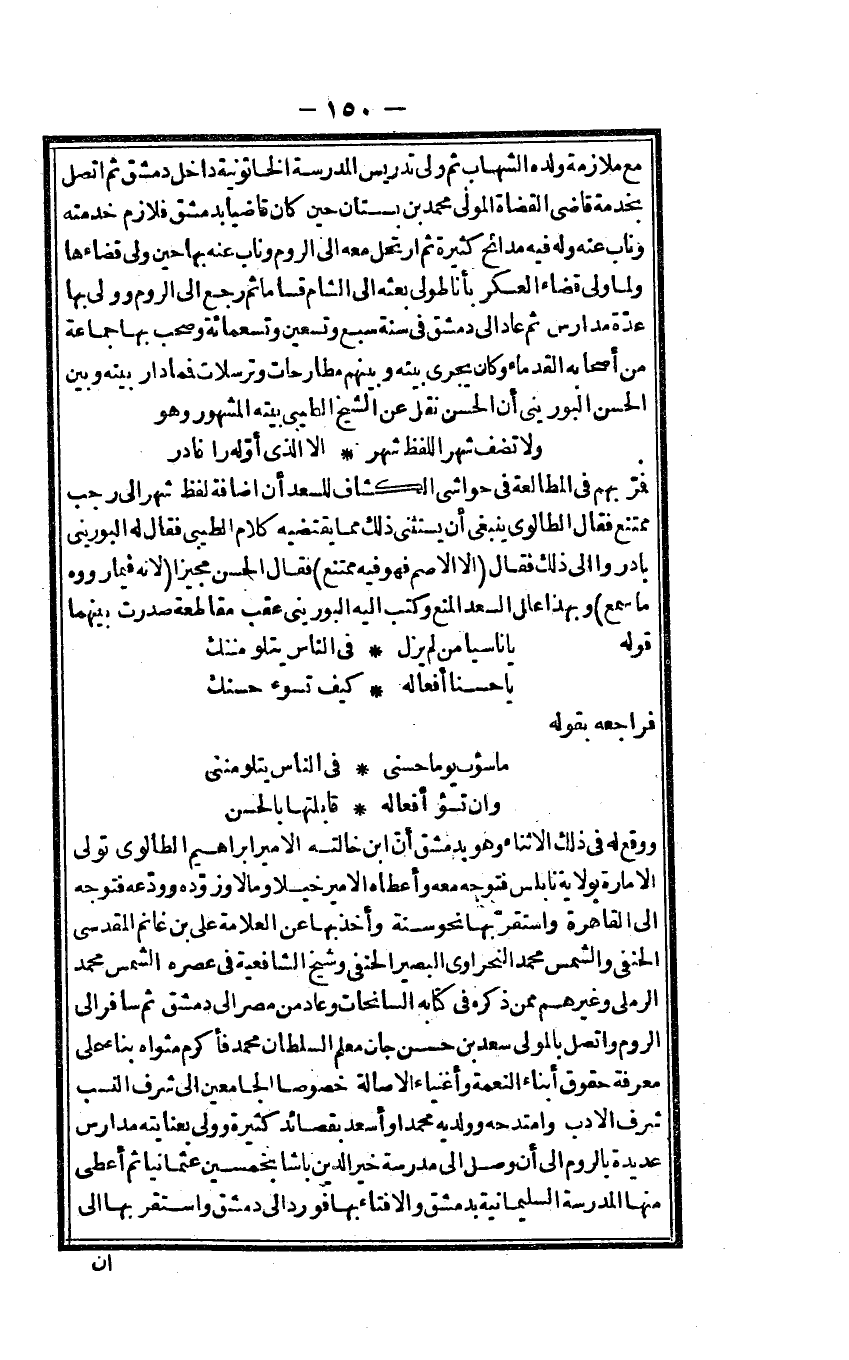 — ١٥٠ —
مع ملازمة ولده الشهاب ثم ولى تدريس المدرسة الخاتونية داخل دمشق ثم اتصل
بخدمة قاضى القضاة المولى محمد بن بستان حين كان قاضيا بدمشق فلازم خدمته
وناب عنه وله فيه مدائح كثيرة ثم ارتحل معه الى الروم وناب عنه بها حين ولى قضاءها
ولما ولى قضاء العسكر بأناطولى بعثه الى الشام قساما ثم رجع الى الروم وولى بها
عدّة مدارس ثم عاد الى دمشق فى سنة سبع وتسعين وتسعمائة وصحب بها جماعة
من أصحابه القدماء وكان يجرى بينه وبينهم مطارحات وترسلات فما دار بينه وبين
الحسن البورينى أن الحسن نقل عن الشيخ الطيبى بيته المشهور وهو
ولا تضف شهرا للفظ شهر * الا الذى أوّله را فادر
فمرّ بهم فى المطالعة فى حواشى الكشاف للسعد أن اضافة لفظ شهر الى رجب
ممتنع فقال الطالوى ينبغى أن يستثنى ذلك مما يقتضيه كلام الطيبى فقال له البورينى
بادروا الى ذلك فقال (الا الاصم فهو فيه ممتنع) فقال الحسن مجيزا (لانه فيما رووه
ما سمع) وبهذا عالى السعد المنع وكتب اليه البورينى عقب مقاطعة صدرت بينهما
قوله يا ناسيا من لم يزل * فى الناس يتلو مننك
يا حسنا أفعاله * كيف تسوء حسنك
فراجعه بقوله
ما سؤت يوما حسنى * فى الناس يتلو مننى
وان تسؤ أفعاله * قابلتها بالحسن
ووقع له فى ذلك الاثناء وهو بدمشق أنّ ابن خالته الامير ابراهيم الطالوى تولى
الامارة بولاية نابلس فتوجه معه وأعطاه الامير خيلا ومالا وزوّده وودّعه فتوجه
الى القاهرة واستقرّ بها نحو سنة وأخذ بها عن العلامة على بن غانم المقدسى
الحنفى والشمس محمد النحراوى البصير الحنفى وشيخ الشافعية فى عصره الشمس محمد
الرملى وغيرهم ممن ذكره فى كتابه السانحات وعاد من مصر الى دمشق ثم سافر الى
الروم واتصل بالمولى سعد بن حسن جان معلم السلطان محمد فأكرم مثواه بناء على
معرفة حقوق أبناء النعمة وأغنياء الاصالة خصوصا الجامعين الى شرف النسب
شرف الادب وامتدحه وولديه محمدا وأسعد بقصائد كثيرة وولى بعنايته مدارس
عديدة بالروم الى أن وصل الى مدرسة خير الدين باشا بخمسين عثمانيا ثم أعطى
منها المدرسة السليمانية بدمشق والافتاء بها فورد الى دمشق واستقر بها الى
ان